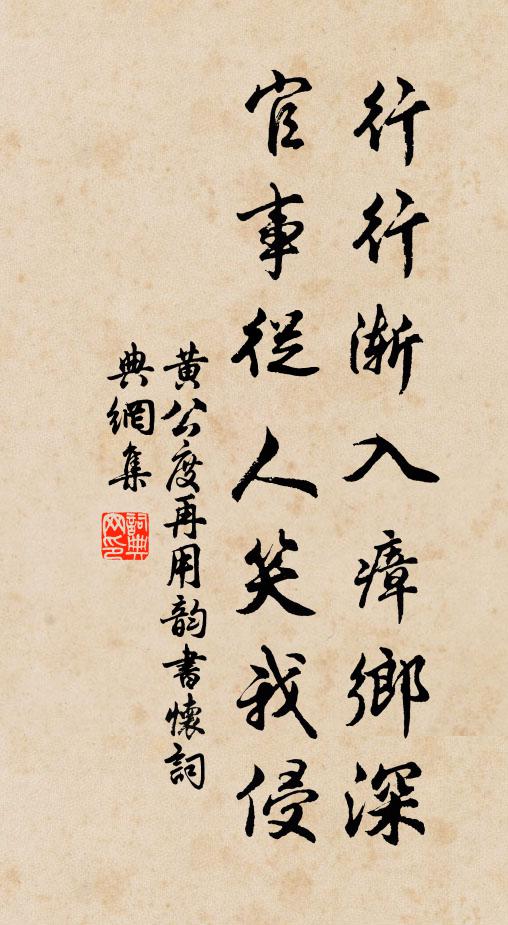 行行漸入瘴鄉深
官事從人笑我侵
黄公度再用韵書懷詞
典網集
詞典網印